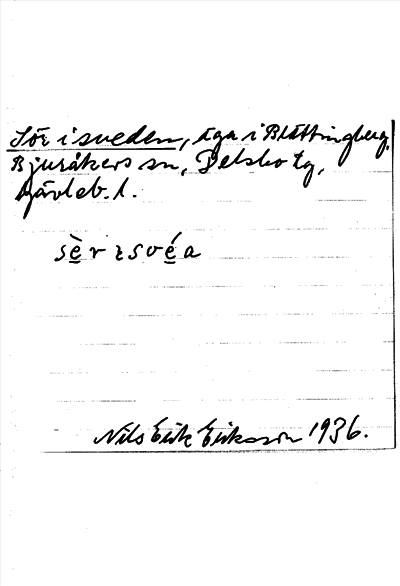 Sör i sveden, äga i Blåttingberg,
Bjuråkers sn, Delsbo tg,
Gävleb. l.
sè̱r ɪ své̱a
Nils Erik Eriksson 1936.